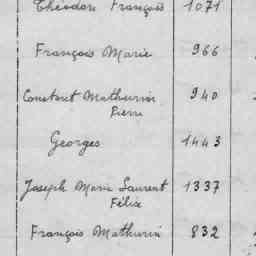 Théodore François 1071
François Marie 966
Constant Mathurin 940
Pierre
Georges 1443
Joseph Marie Laurent 1337
Félix
François Mathurin 832